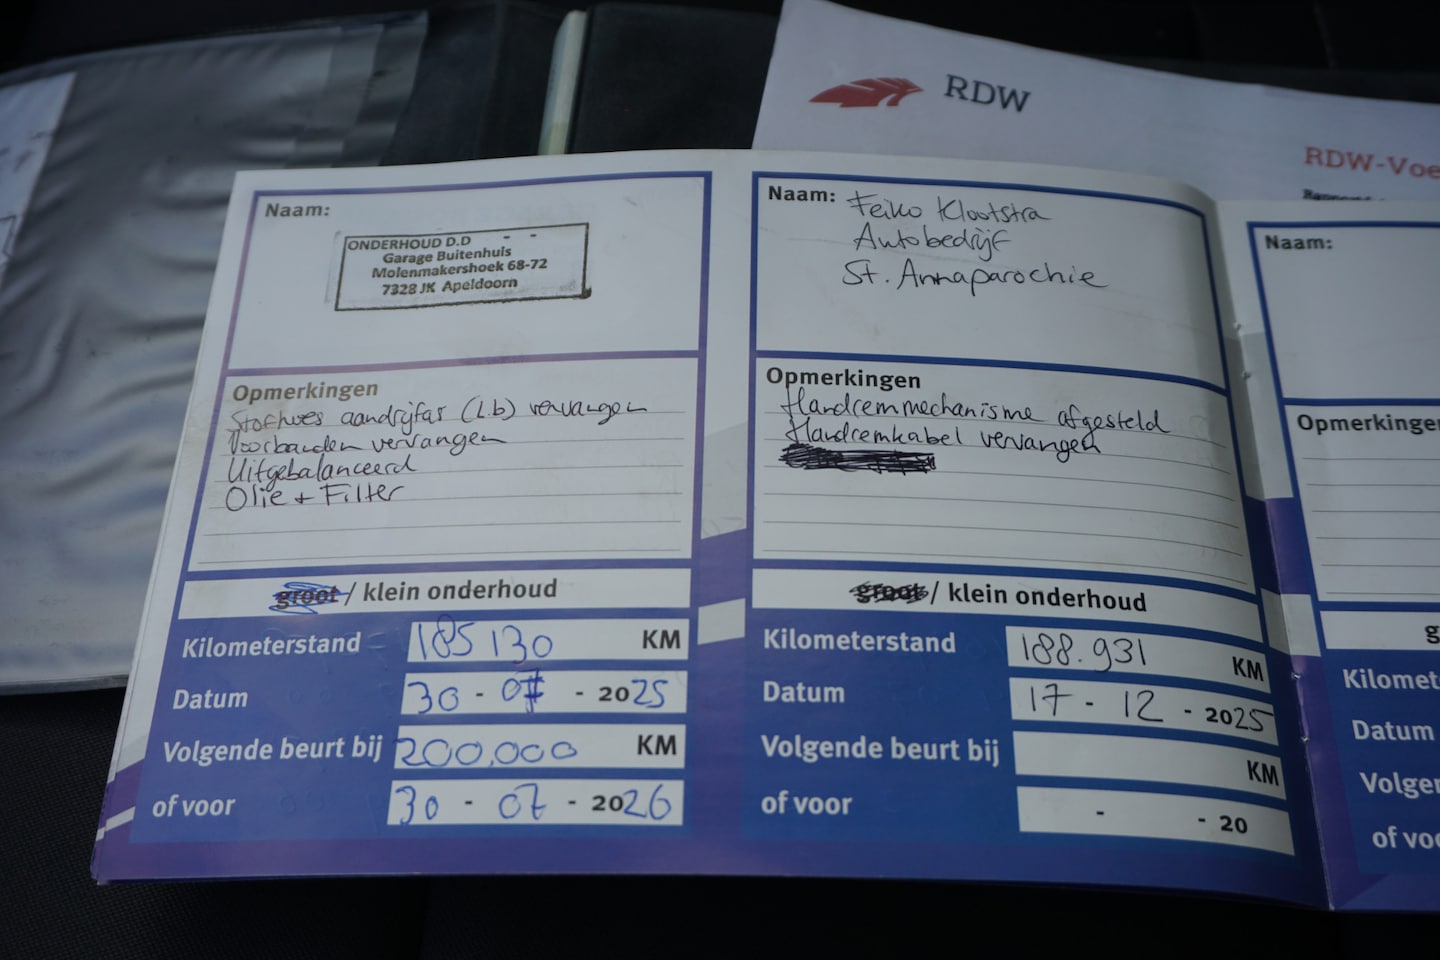 RDW
RDW-Voe
Naam:
ONDERHOUD D.D - -
Garage Buitenhuis
Molenmakershoek 68-72
7328 JK Apeldoorn
Opmerkingen
Stofhoes aandrijfas (L.b) vervangen
Voorbanden vervangen
Uitgebalanceerd
Olie + Filter
groot / klein onderhoud
Kilometerstand 185130 KM
Datum 30 - 07 - 2025
Volgende beurt bij 200.000 KM
of voor 30 - 07 - 2026
Naam: Feiko Klootstra
Autobedrijf
St. Annaparochie
Opmerkingen
Handremmechanisme afgesteld
Handremkabel vervangen
groot / klein onderhoud
Kilometerstand 188.931 KM
Datum 17 - 12 - 2025
Volgende beurt bij KM
of voor - - 20
Naam:
Opmerkingen
g
Kilomet
Datum
Volge
of voo